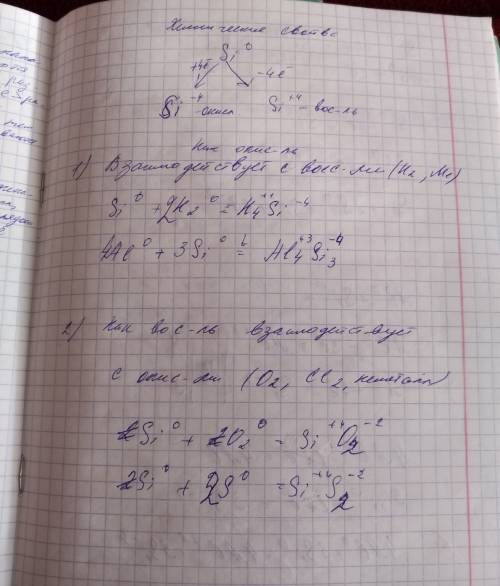 Химические свойства
Si⁰
+4ē -4ē
Si⁻⁴ -окисл Si⁺⁴ - вос-ль
Как окис-ль
1) Взаимодействует с восс-ми (H₂, Me)
Si⁰ + 2H₂⁰ = H₄⁺¹Si⁻⁴
4Al⁰ + 3Si⁰ =ᵗ Al₄⁺³Si₃⁻⁴
2) Как вос-ль взаимодействует
с окис-ми (O₂, Cl₂, неметалл)
Si⁰ + O₂⁰ = Si⁺⁴O₂⁻²
Si⁰ + 2S⁰ = Si⁺⁴S₂⁻²